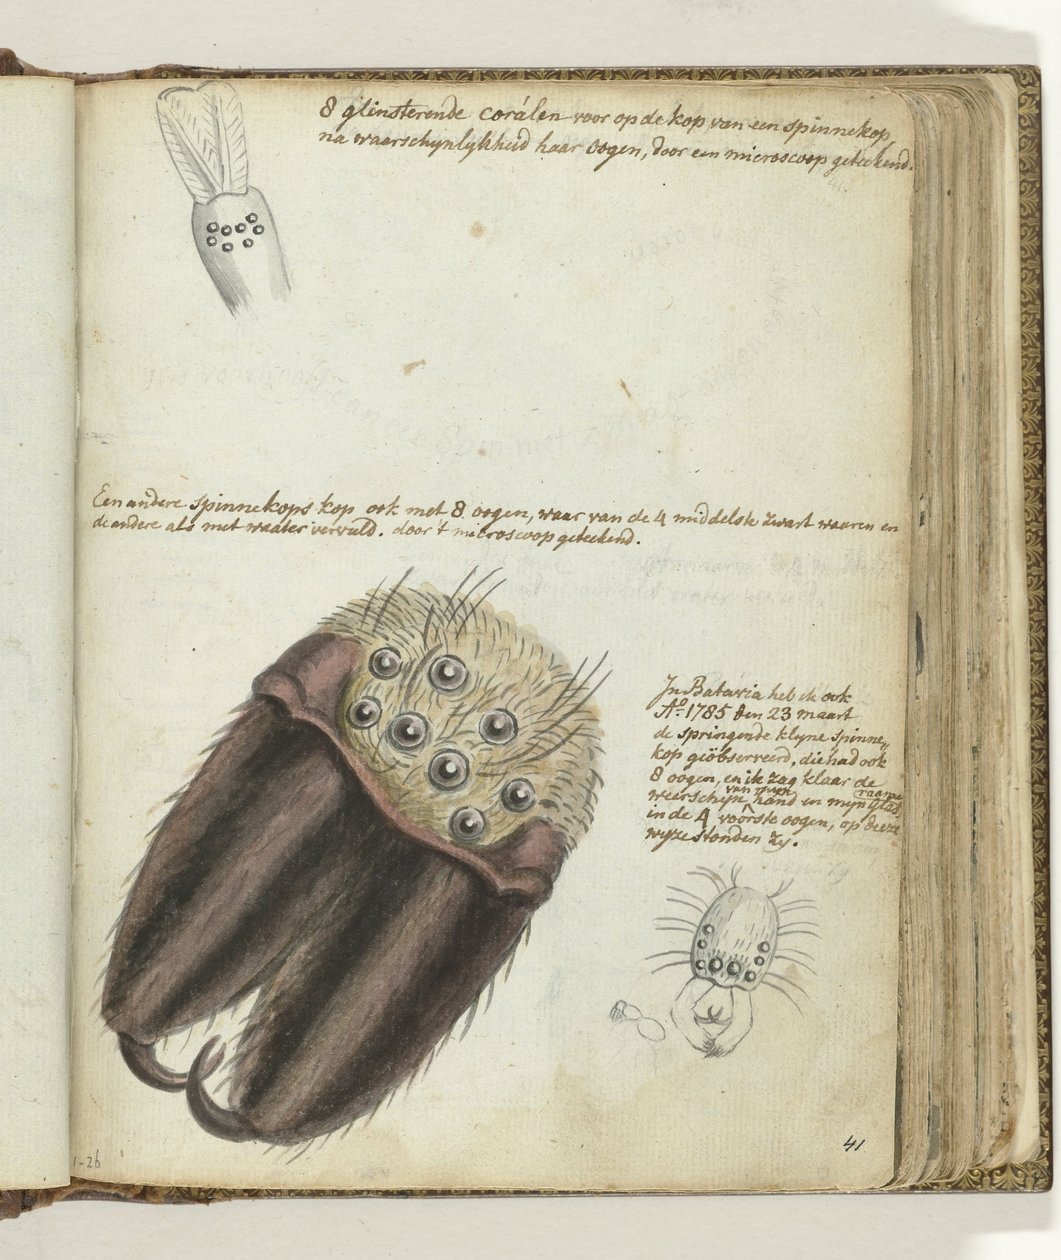 8 glinsterende coralen voor op de kop van een spinnekop,
na waarschynlykheid haar oogen, door een microscoop geteekend.
Een andere spinnekops kop ook met 8 oogen, waar van de 4 middelste zwart waaren en
de andere als met waater vervuld. door 't microscoop geteekend.
In Batavia heb ik ook
Aº. 1785 den 23 maart
de springende klyne spinne,,
kop geöbserveerd, die had ook
8 oogen, en ik zag klaar de
weerschyn van myn hand en myn glas raamen
in de 4 voorste oogen, op deeze
wyze stonden zy.
41
1-26